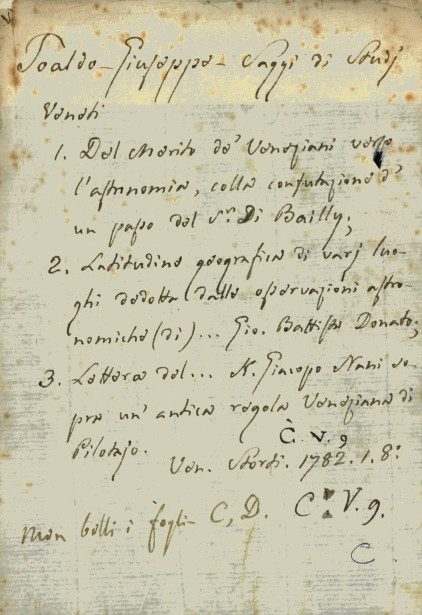 Toaldo - Giuseppe - Saggi di Studj
Veneti
1. Del Merito de' Veneziani verso
l'astronomia, colla confutazione d'
un passo del S.r Di Bailly;
2. Latitudine geografica di varj luo-
ghi dedotta dalle osservazioni astro-
nomiche (di)... Gio. Battista Donato;
3. Lettera del... N. Giacopo Nani so-
pra un' antica regola Veneziana di
Pilotajo.
C. V. 9
Ven. Storti. 1782. 1. 8:
Men belli i fogli C, D. C. V. 9.
C